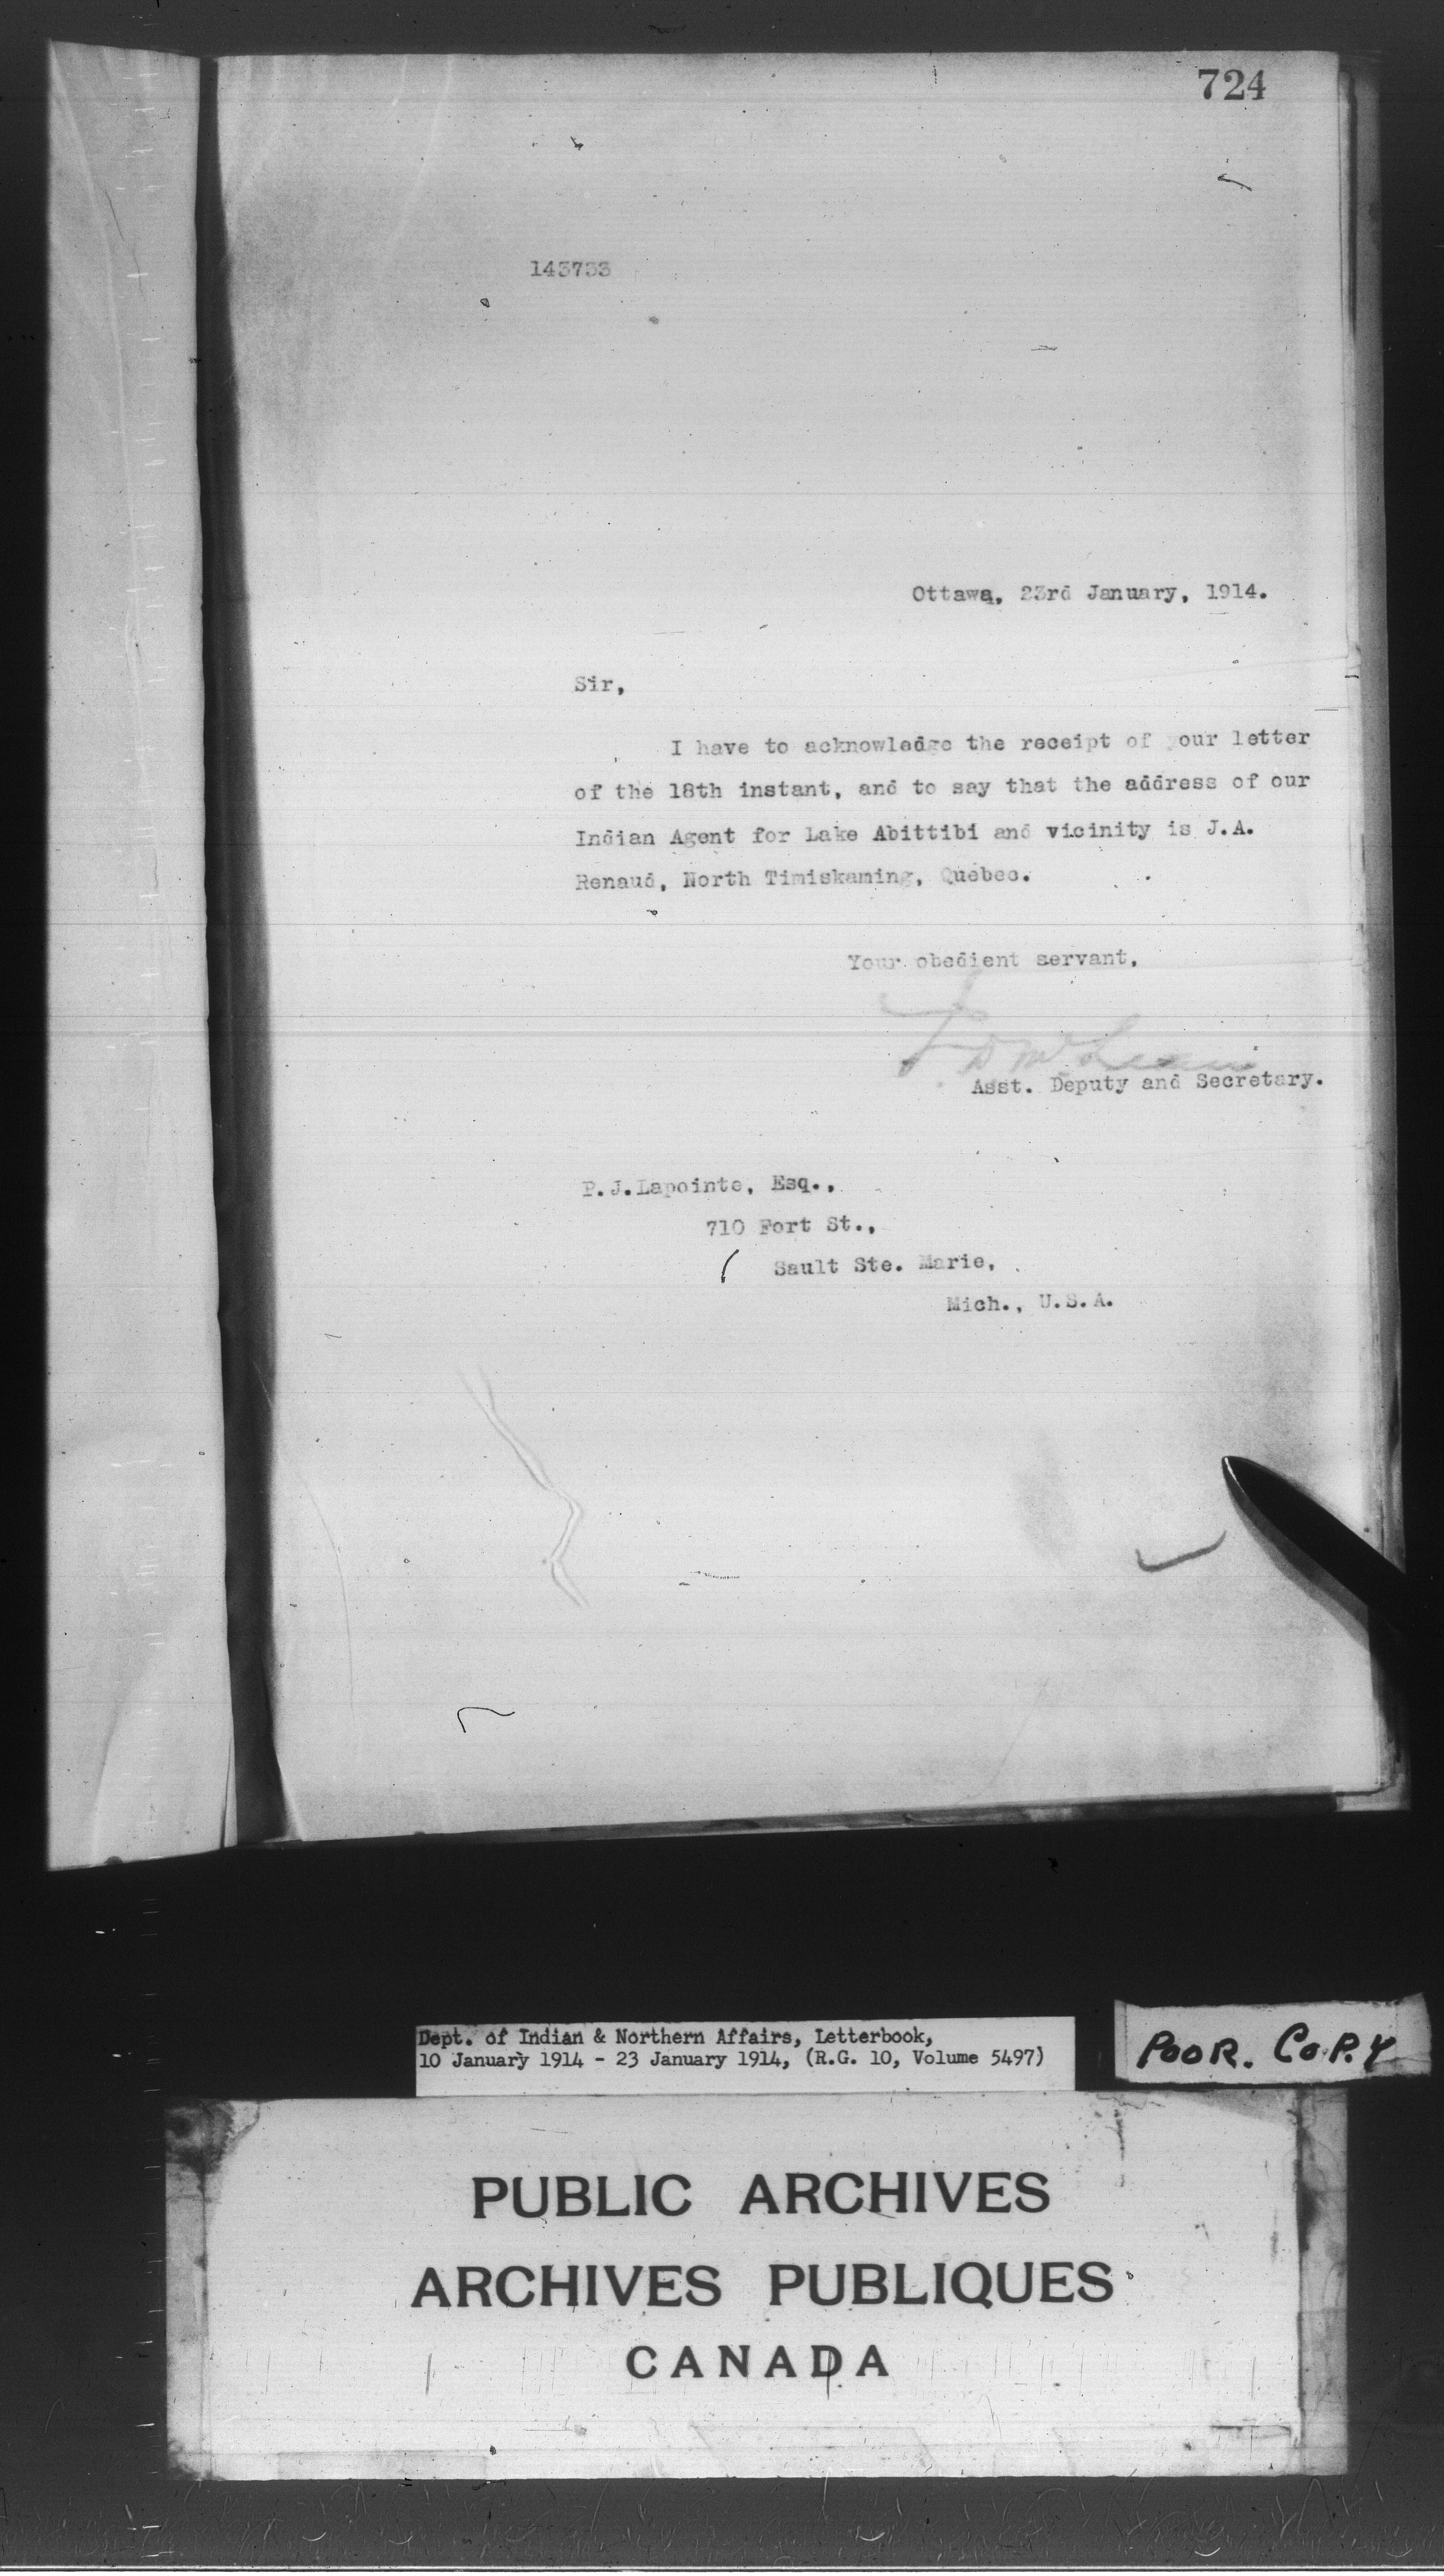 724
143733
Ottawa, 23rd January, 1914.
Sir,
I have to acknowledge the receipt of your letter
of the 18th instant, and to say that the address of our
Indian Agent for Lake Abittibi and vicinity is J.A.
Renaud, North Timiskaming, Quebec.
Your obedient servant,
J D McLean
Asst. Deputy and Secretary.
P.J.Lapointe, Esq.,
710 Fort St.,
Sault Ste. Marie,
Mich., U.S.A.
Dept. of Indian & Northern Affairs, Letterbook,
10 January 1914 - 23 January 1914, (R.G. 10, Volume 5497)
POOR. COPY
PUBLIC ARCHIVES
ARCHIVES PUBLIQUES
CANADA